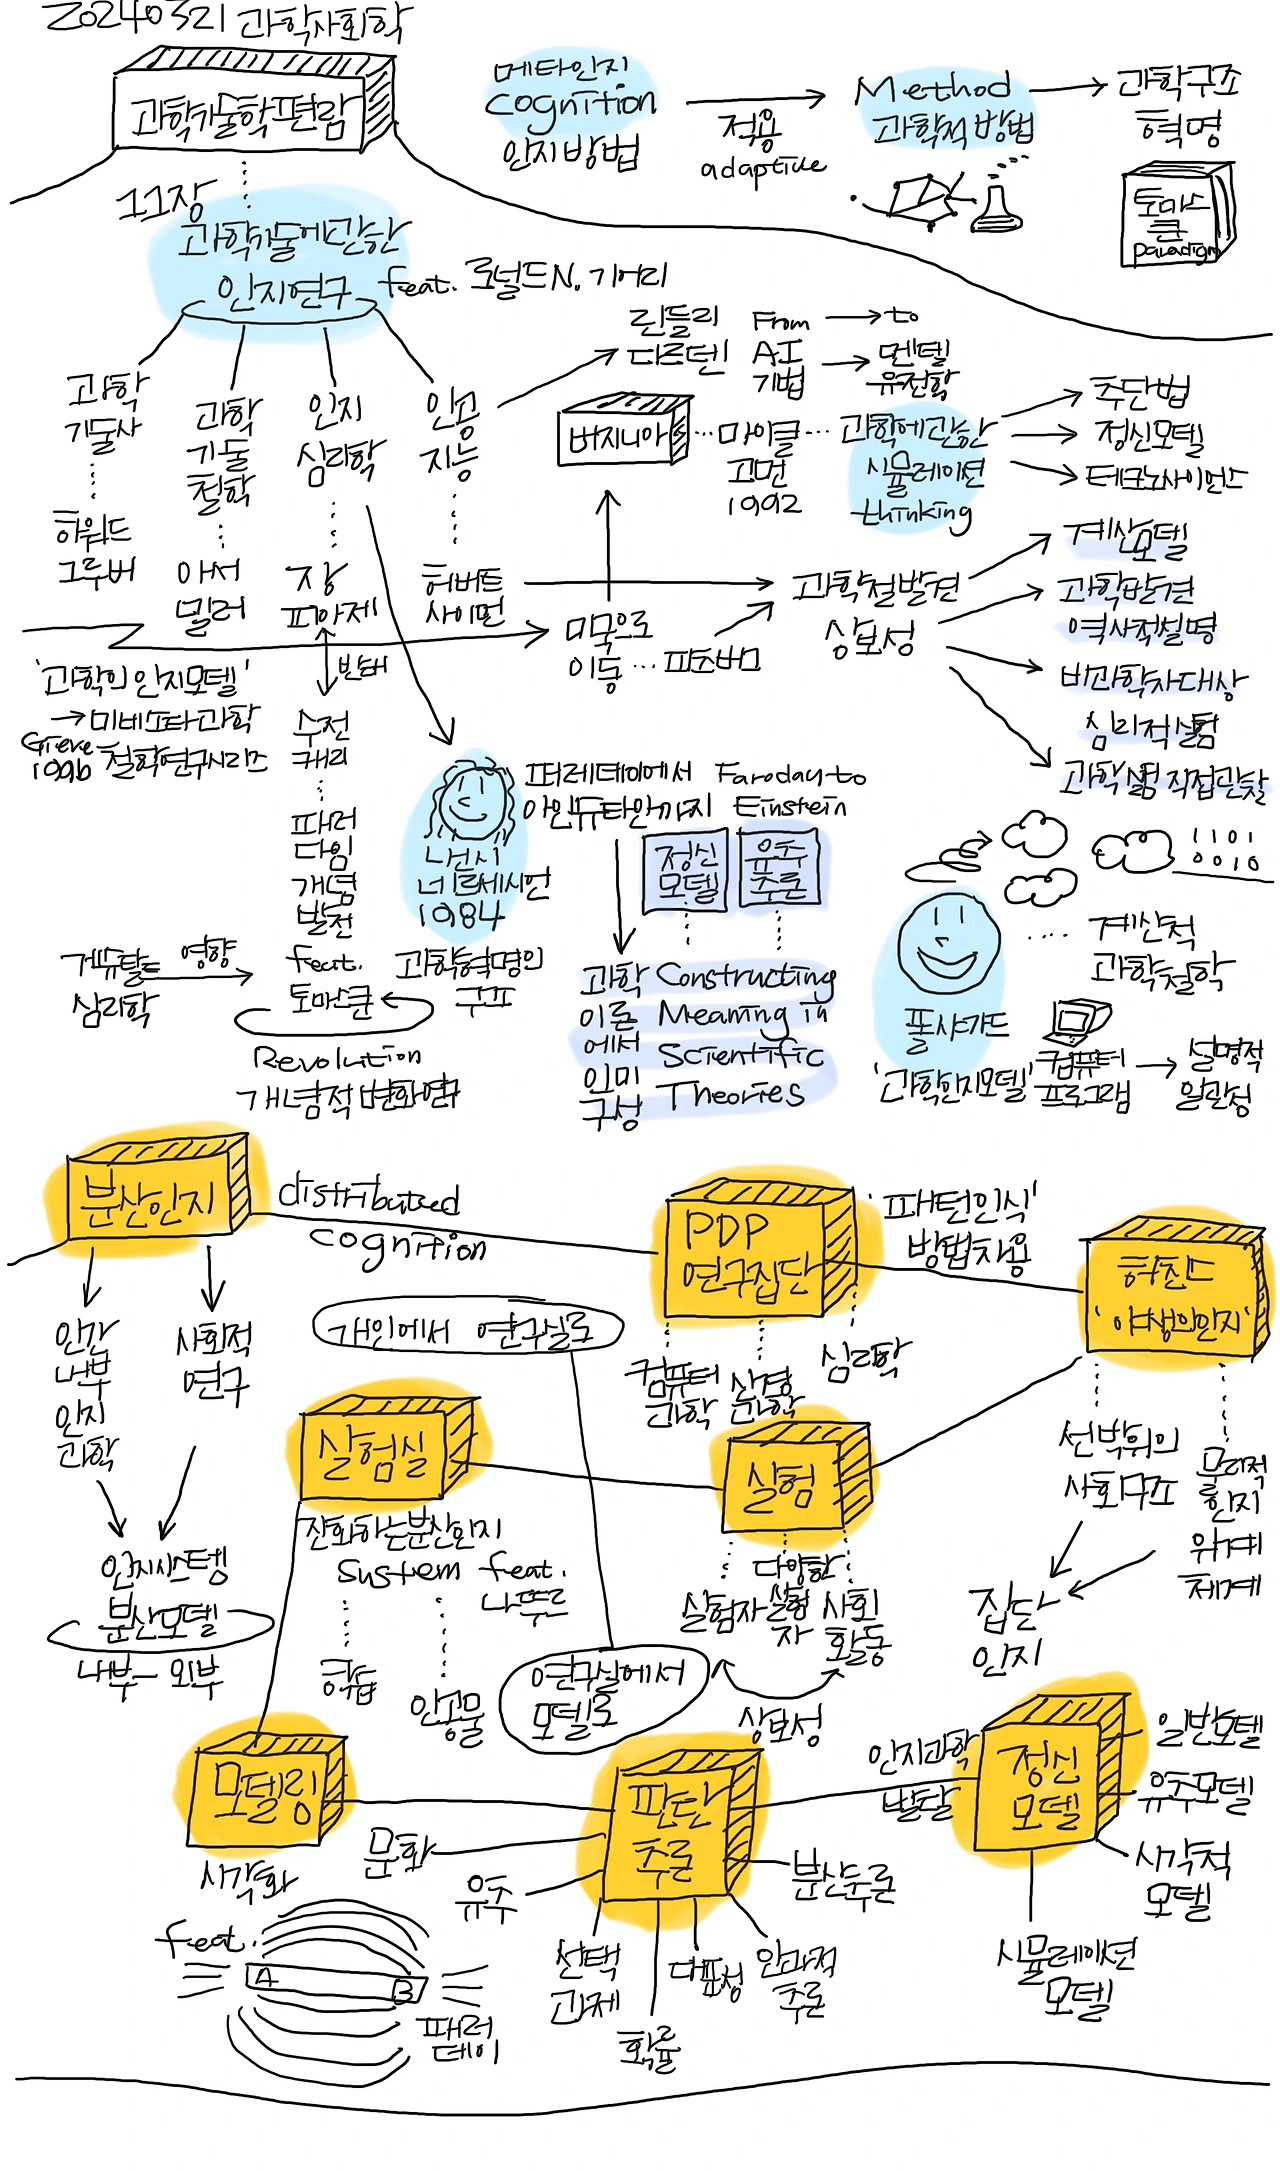 20240321 과학사회학
과학기술학편람
11장
과학기술에관한
인지연구
feat. 로널드N. 기어리
메타인지
cognition
인지방법
적용
adaptive
Method
과학적 방법
과학구조
혁명
토마스
쿤
paradigm
과학
기술사
하워드
그루버
과학
기술
철학
아서
밀러
인지
심리학
장
피아제
인공
지능
허버트
사이먼
린들리
다르덴
From
AI
기법
to
멘델
유전학
버지니아
마이클
고먼
1992
과학에관한
시뮬레이션
thinking
추단법
정신모델
테크노사이언스
미국으로
이동
피츠버그
과학철발견
상보성
계산모델
과학발견
역사적설명
비과학자대상
심리적실험
과학실험 직접관찰
'과학의 인지모델'
→미네소타과학
철학연구시리즈
반대
수전
캐리
패러
다임
개념
발전
feat.
토마스쿤
게슈탈트
심리학
영향
Revolution
개념적 변화연구
낸시
너르세시언
1984
과학혁명의
구조
패러데이에서
아인슈타인까지
Faraday to
Einstein
정신
모델
유추
추론
과학
이론
에서
의미
구성
Constructing
Meaning in
Scientific
Theories
1101
0010
계산적
과학철학
폴샤가드
'과학인지모델'
컴퓨터
프로그램
설명적
일관성
분산인지
distributed
cognition
PDP
연구집단
'패턴인식'
방법차용
허친스
'야생의인지'
인간
내부
인지
과학
사회적
연구
인지시스템
분산모델
내부 — 외부
개인에서 연구실로
컴퓨터
과학
신경
과학
심리학
실험실
진화하는분산인지
system feat.
라뚜르
학습
인공물
실험
실험자
다양한
실험
자
사회
활동
상보성
선박위의
사회구조
물리적
인지
위계
체계
집단
인지
연구실에서
모델로
모델링
시각화
feat.
A
B
패러
데이
판단
추론
문화
유추
선택
과제
확률
대표성
인과적
추론
분산추론
인지과학
발달
정신
모델
일반모델
유추모델
시각적
모델
시뮬레이션
모델